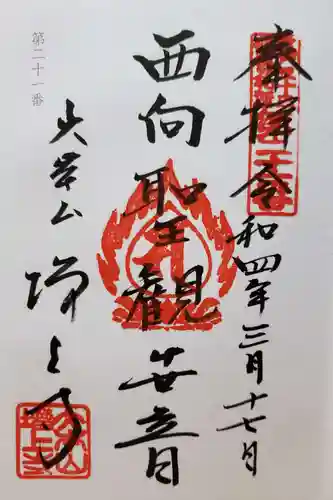 奉拝 令和四年三月十七日
西向聖觀世音
大本山 増上寺
第二十一番